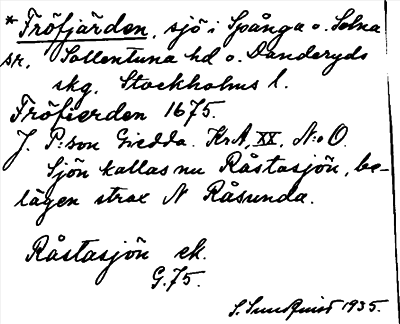 *Fröfjärden, sjö i Spånga o. Solna
sr, Sollentuna hd o. Danderyds
skg, Stockholms l.
Fröfierden 1675.
J. P:son Giedda. KrA, XX, N:o 0.
Sjön kallas nu Råstasjön, be-
lägen strax N Råsunda.
Råstasjön ek.
G.75.
S. Sundquist 1935.